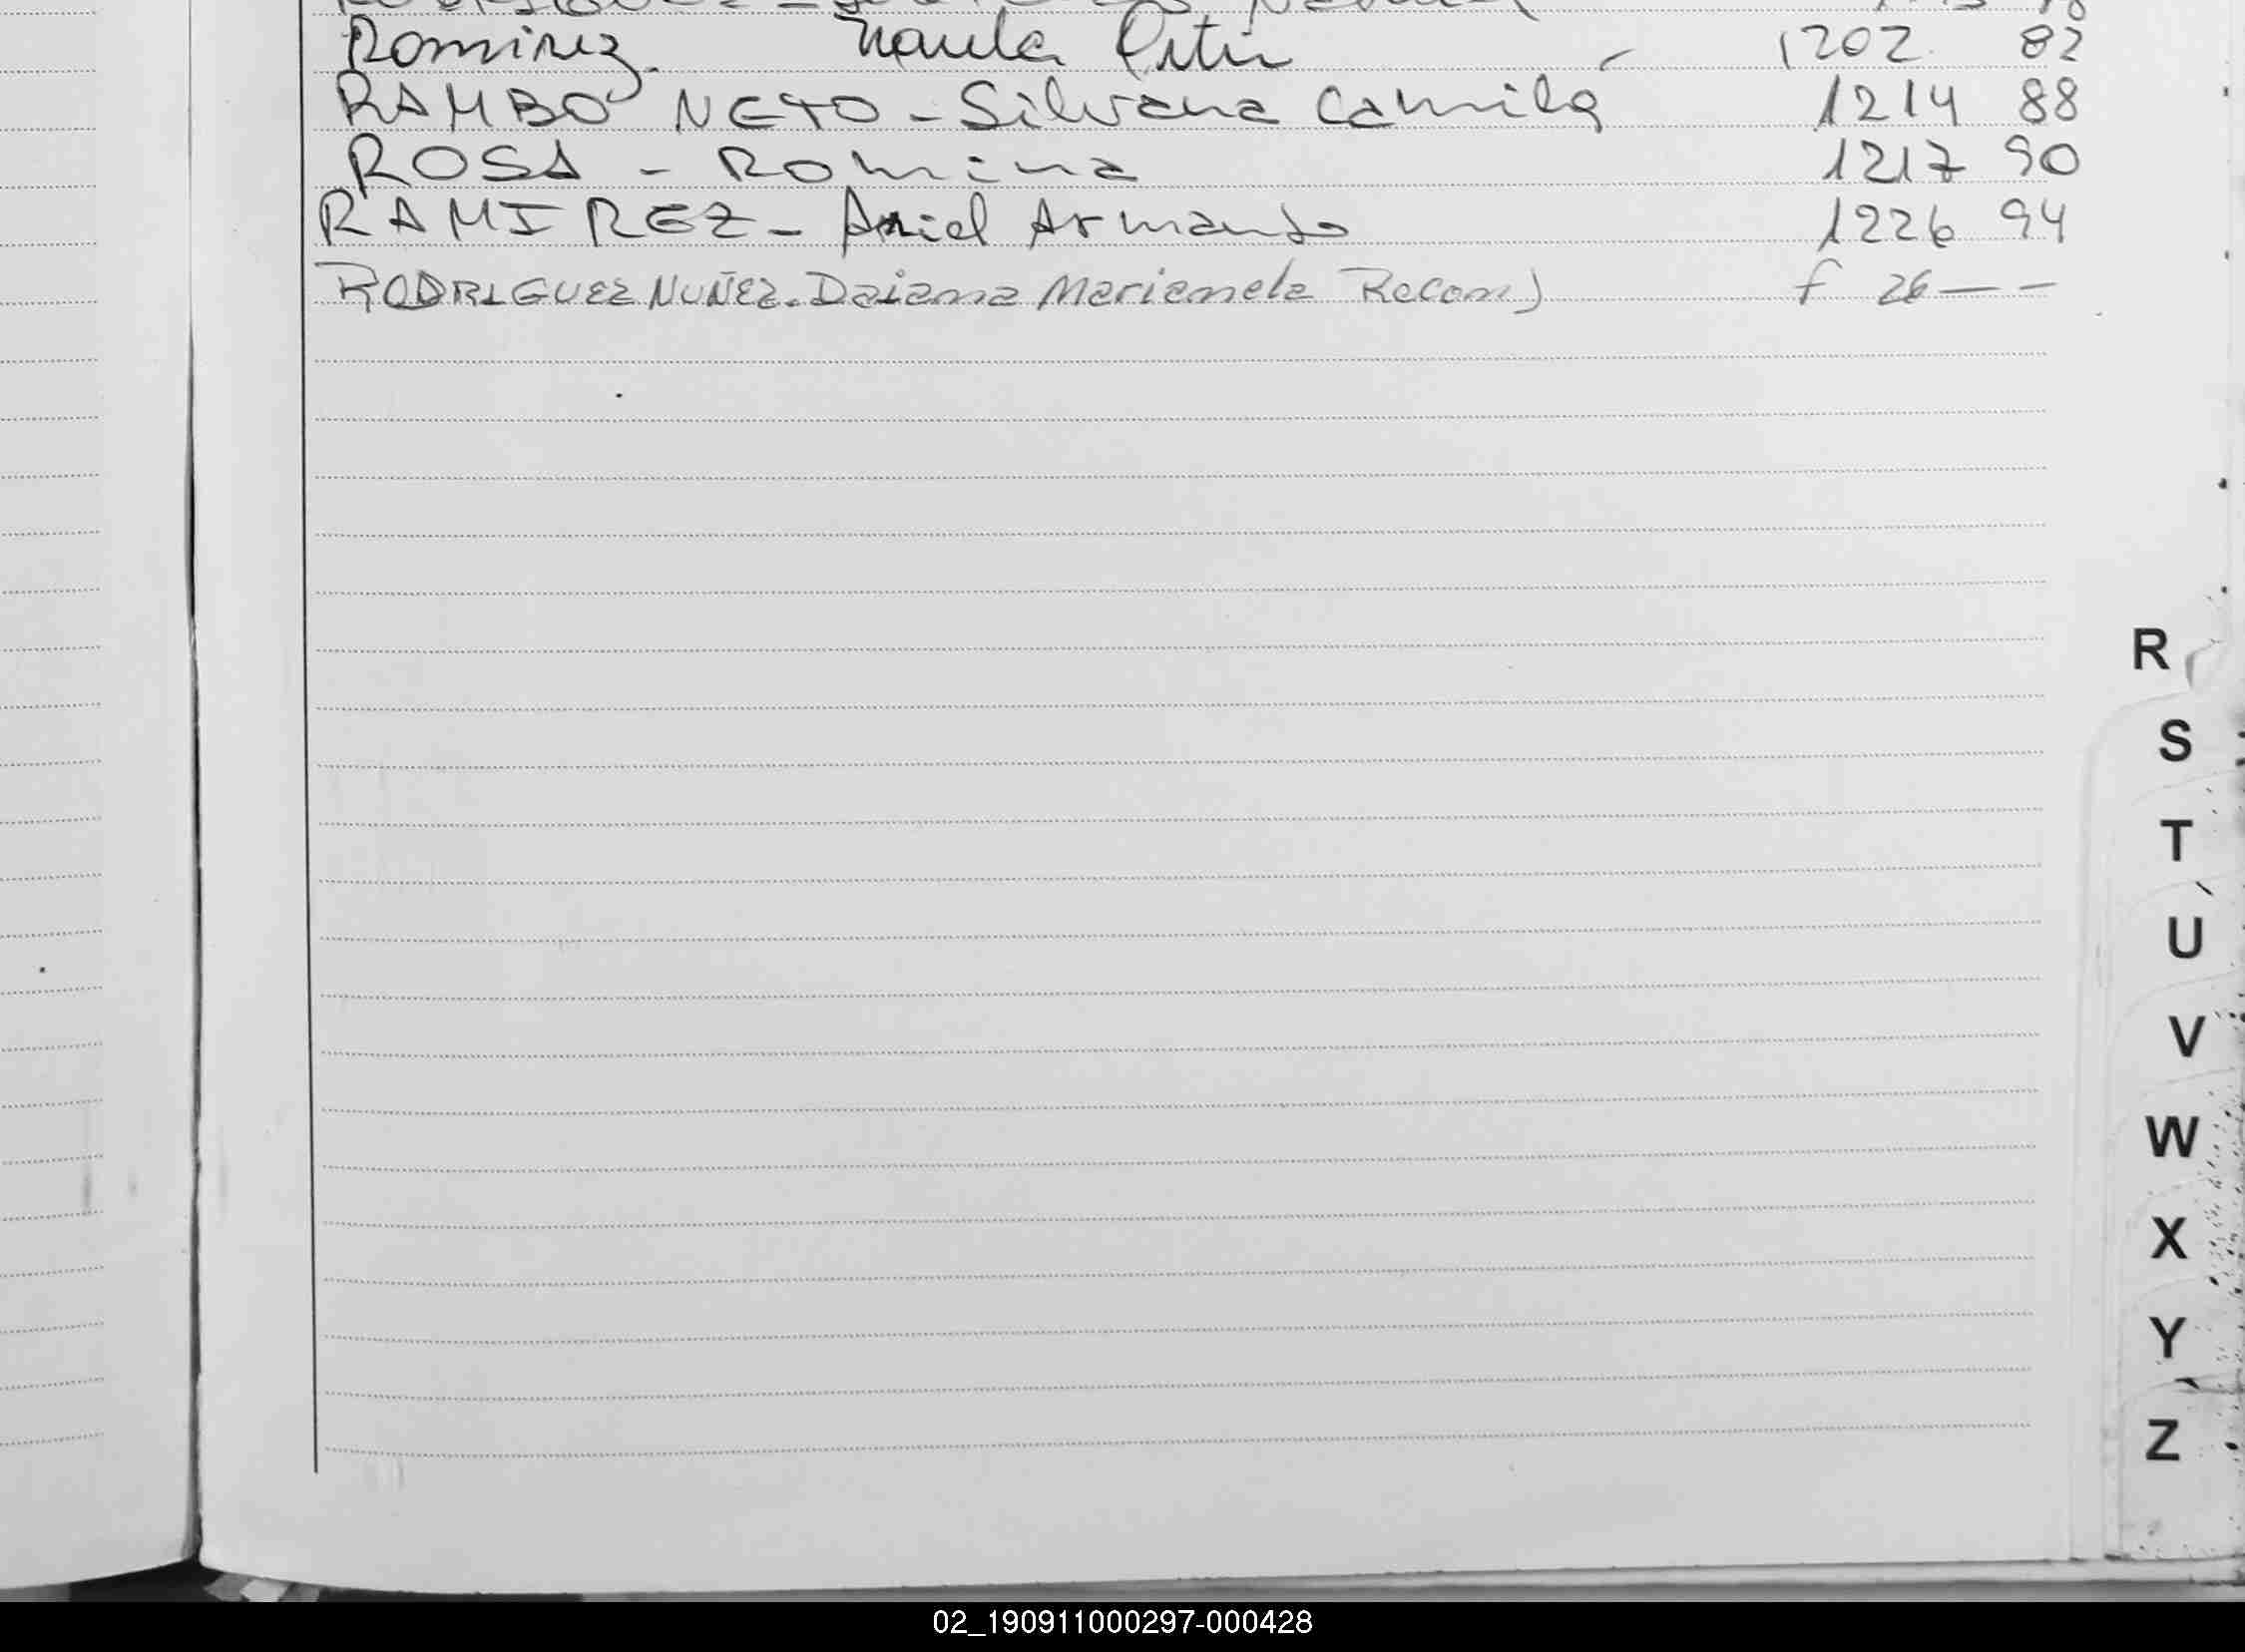 Romirez. 1202 82
RAMBO NETO - Silvana Camila 1214 88
ROSA - Romina 1217 90
RAMIREZ - Ariel Armando 1226 94
RODRIGUEZ NUÑEZ. Daiana Marianela Recon) f 26 — —
R
S
T
U
V
W
X
Y
Z
02_190911000297-000428